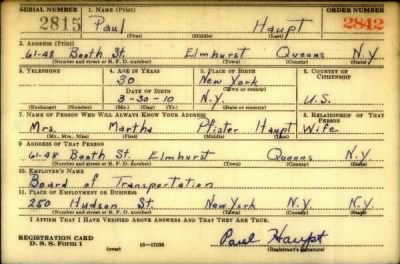 SERIAL NUMBER 1. NAME (Print) ORDER NUMBER
2815 Paul Haupt 2842
(First) (Middle) (Last)
2. ADDRESS (Print)
61-48 Booth St. Elmhurst Queens N.Y
(Number and street or R. F. D. number) (Town) (County) (State)
3. TELEPHONE 4. AGE IN YEARS 5. PLACE OF BIRTH 6. COUNTRY OF CITIZENSHIP
30 New York
DATE OF BIRTH (Town or county)
3-30-10 N.Y. U.S.
(Exchange) (Number) (Mo.) (Day) (Yr.) (State or country)
7. NAME OF PERSON WHO WILL ALWAYS KNOW YOUR ADDRESS 8. RELATIONSHIP OF THAT PERSON
Mrs. Martha Pfister Haupt Wife
(Mr., Mrs., Miss) (First) (Middle) (Last)
9. ADDRESS OF THAT PERSON
61-48 Booth St. Elmhurst Queens N.Y
(Number and street or R. F. D. number) (Town) (County) (State)
10. EMPLOYER'S NAME
Board of Transportation
11. PLACE OF EMPLOYMENT OR BUSINESS
250 Hudson St. New York N.Y. N.Y.
(Number and street or R. F. D. number) (Town) (County) (State)
I AFFIRM THAT I HAVE VERIFIED ABOVE ANSWERS AND THAT THEY ARE TRUE.
REGISTRATION CARD
D. S. S. Form 1 (over) 16-17105 Paul Haupt
(Registrant's signature)